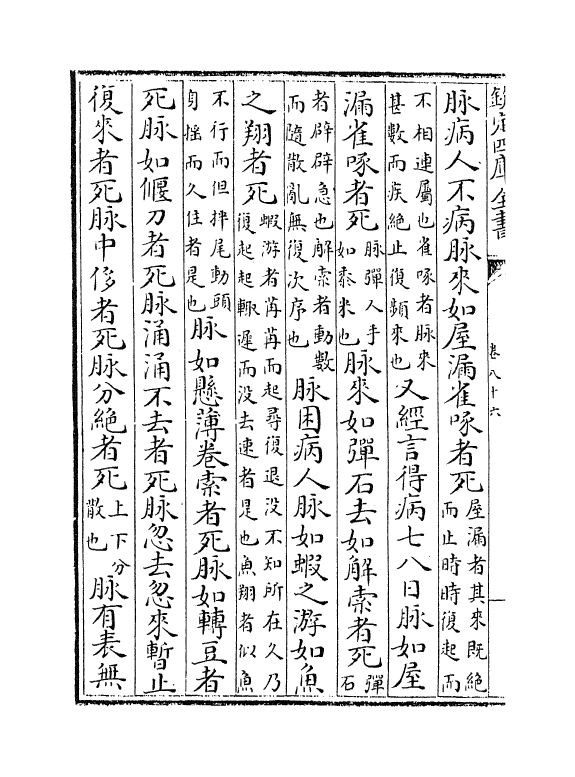 欽定四庫全書
卷八十六
脉病人不病脉來如屋漏雀啄者死屋漏者其來既絶而止時時復起而
不相連屬也雀啄者脉來甚數而疾絶止復頻來也又經言得病七八日脉如屋
漏雀啄者死脉彈人手如黍米也脉來如彈石去如解索者死彈石
者辟辟急也解索者動數而隨散亂無復次序也脉困病人脉如蝦之游如魚
之翔者死蝦游者苒苒而起尋復退没不知所在久乃復起起輒遲而没去速者是也魚翔者似魚
不行而但掉尾動頭身揺而久住者是也脉如懸薄卷索者死脉如轉豆者
死脉如偃刀者死脉涌涌不去者死脉忽去忽來暫止
復來者死脉中侈者死脉分絶者死上下分散也脉有表無